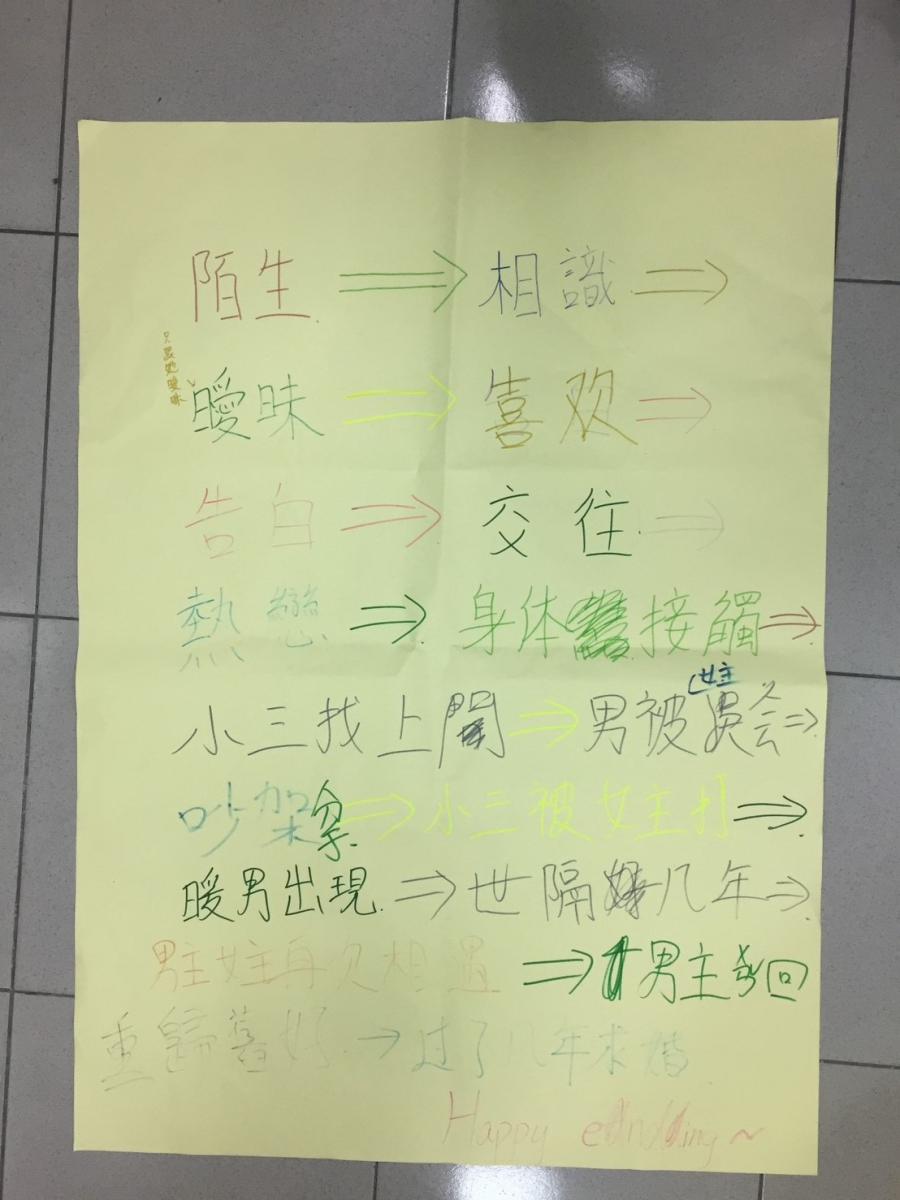 陌生 ⇒ 相識 ⇒
曖昧 ⇒ 喜欢 ⇒
告白 ⇒ 交往 ⇒
熱戀 ⇒ 身体接觸 ⇒
小三找上 ⇒ 男被会 ⇒
女主
吵架 ⇒ 小三被女主打 ⇒
暖男出現 ⇒ 世隔几年 ⇒
男主女主再次相遇 ⇒ 男主回
重歸舊好 → 过了几年求婚
Happy ending ~